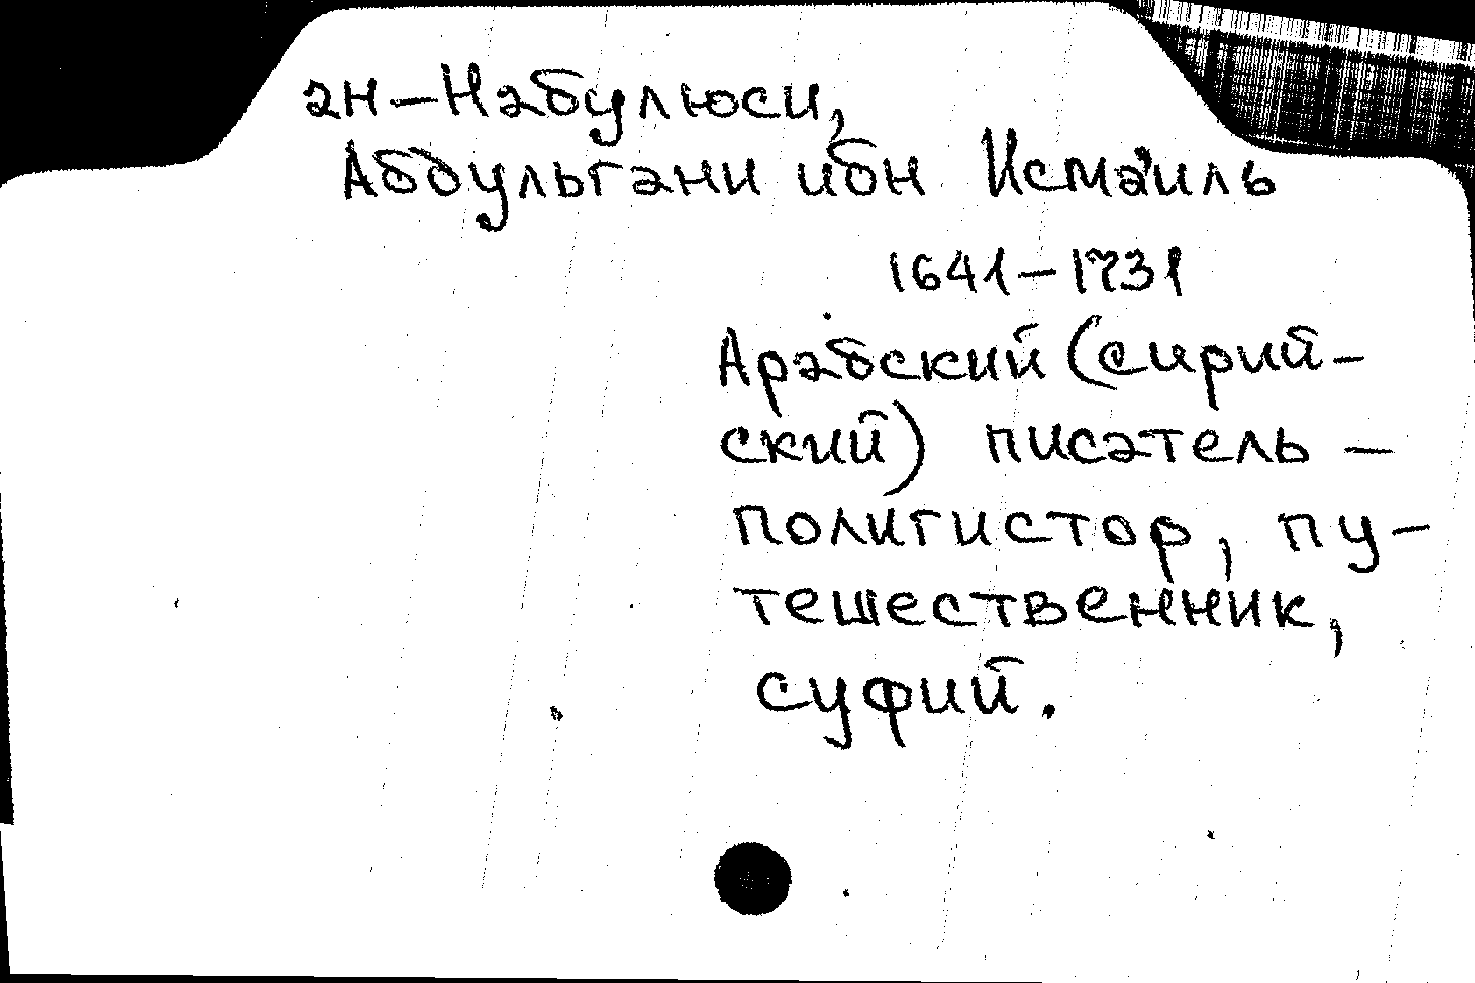 ан-Набулюси,
Абдульгани ибн Исма'иль
1641-1731
Арабский (сирий-
ский) писатель -
полигистор, пу-
тешественник,
суфий.